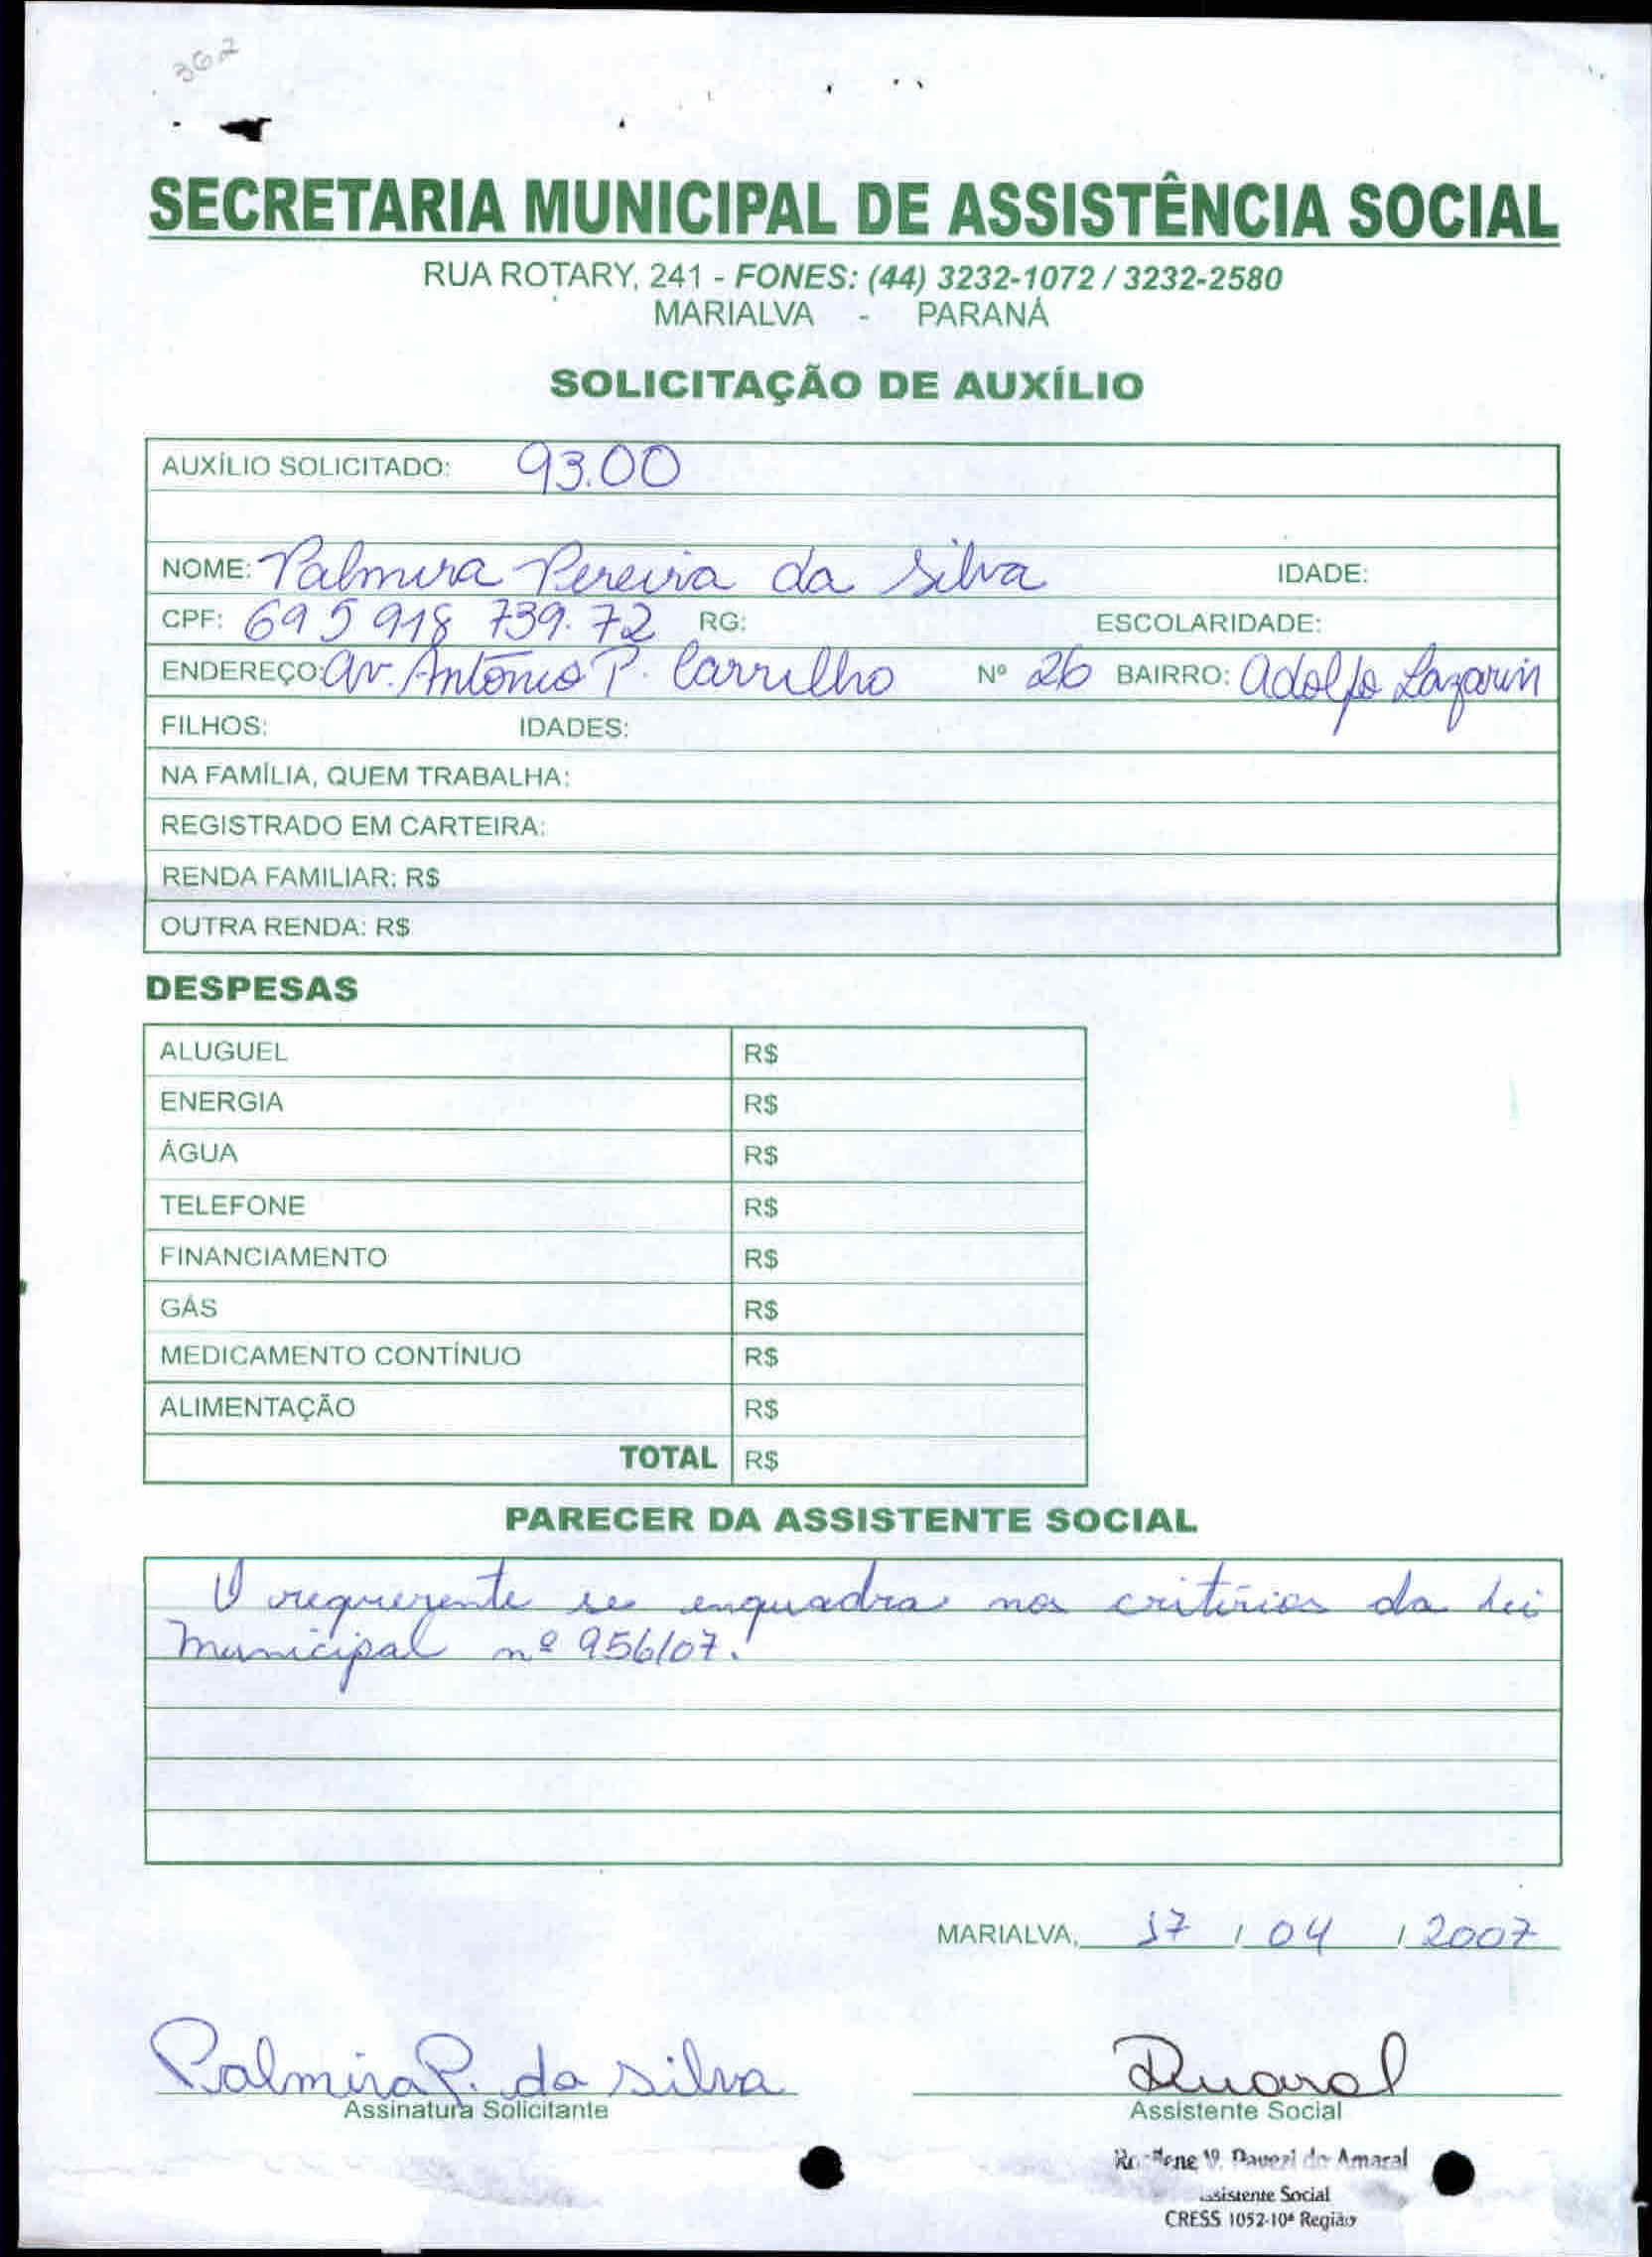 362
SECRETARIA MUNICIPAL DE ASSISTÊNCIA SOCIAL
RUA ROTARY, 241 - FONES: (44) 3232-1072 / 3232-2580
MARIALVA - PARANÁ
SOLICITAÇÃO DE AUXÍLIO
AUXÍLIO SOLICITADO: 93.00
NOME: Palmira Pereira da Silva IDADE:
CPF: 695 918 739.72 RG: ESCOLARIDADE:
ENDEREÇO: Av. Antônio P. Carrilho Nº 26 BAIRRO: Adolfo Lazarin
FILHOS: IDADES:
NA FAMÍLIA, QUEM TRABALHA:
REGISTRADO EM CARTEIRA:
RENDA FAMILIAR: R$
OUTRA RENDA: R$
DESPESAS
ALUGUEL R$
ENERGIA R$
ÁGUA R$
TELEFONE R$
FINANCIAMENTO R$
GÁS R$
MEDICAMENTO CONTÍNUO R$
ALIMENTAÇÃO R$
TOTAL R$
PARECER DA ASSISTENTE SOCIAL
O requerente se enquadra nos critérios da Lei
Municipal nº 956/07.
MARIALVA, 17 / 04 / 2007
Palmira P. da Silva
Assinatura Solicitante
Assistente Social
Amaral
Assistente Social
CRESS 1052-10ª Região